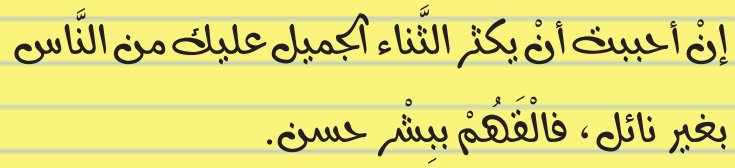 إنْ أحببت أنْ يكثر الثَّناء الجميل عليك من النَّاس
بغير نائل، فالْقَهُمْ بِبِشْر حسن.